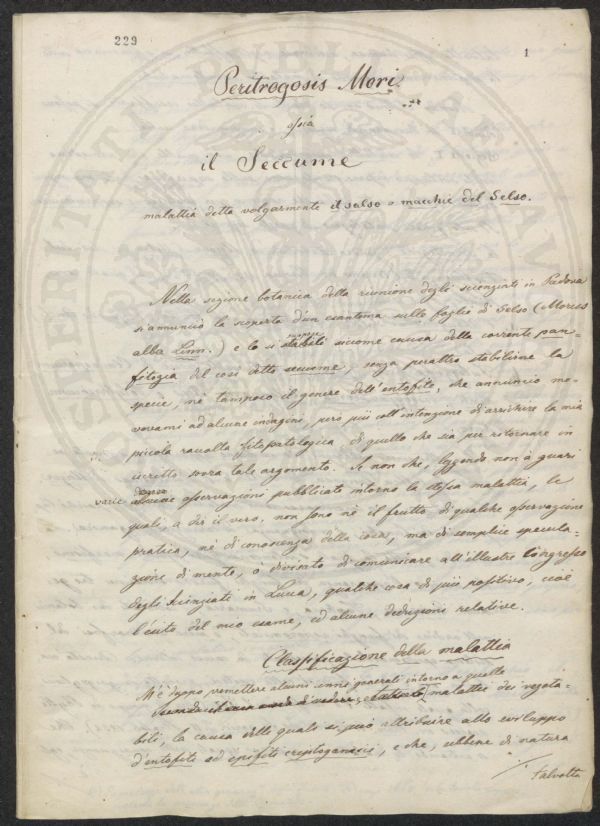 229
1
Peritrogosis Mori
ossia
il Seccume
malattia detta volgarmente il salso o macchie del Gelso.
Nella sezione botanica della riunione degli scienziati in Padova
si annunciò la scoperta d'un esantema sulle foglie di Gelso (Morus
alba Linn.) e lo si siccome causa della corrente pan-
fitozia del così detto seccume, senza peraltro stabilirne la
specie, nè tampoco il genere dell'entofito, che annuncio mo-
vevami ad alcune indagini, però più coll'intenzione di arrichire la mia
piccola raccolta fitopatologica, di quello che sia per ritornare in
iscritto sovra tale argomento. Se non che, leggendo non à guari
varie osservazioni pubblicate intorno la stessa malattia, le
quali, a dir il vero, non sono nè il frutto di qualche osservazione
pratica, nè di conoscenza della cosa, ma di semplice specula-
zione di mente, ò divisato di comunicare all'illustre Congresso
degli Scienziati in Lucca, qualche cosa di più positivo, cioè,
l'esito del mio esame, ed alcune deduzioni relative.
Classificazione della malattia
M'è duopo premettere alcuni cenni generali intorno a quelle
malattie dei vegeta-
bili, la causa delle quali si può attribuire allo sviluppo
d'entofiti ed epifiti creptoganesis, e che, sebbene di natura
talvolta